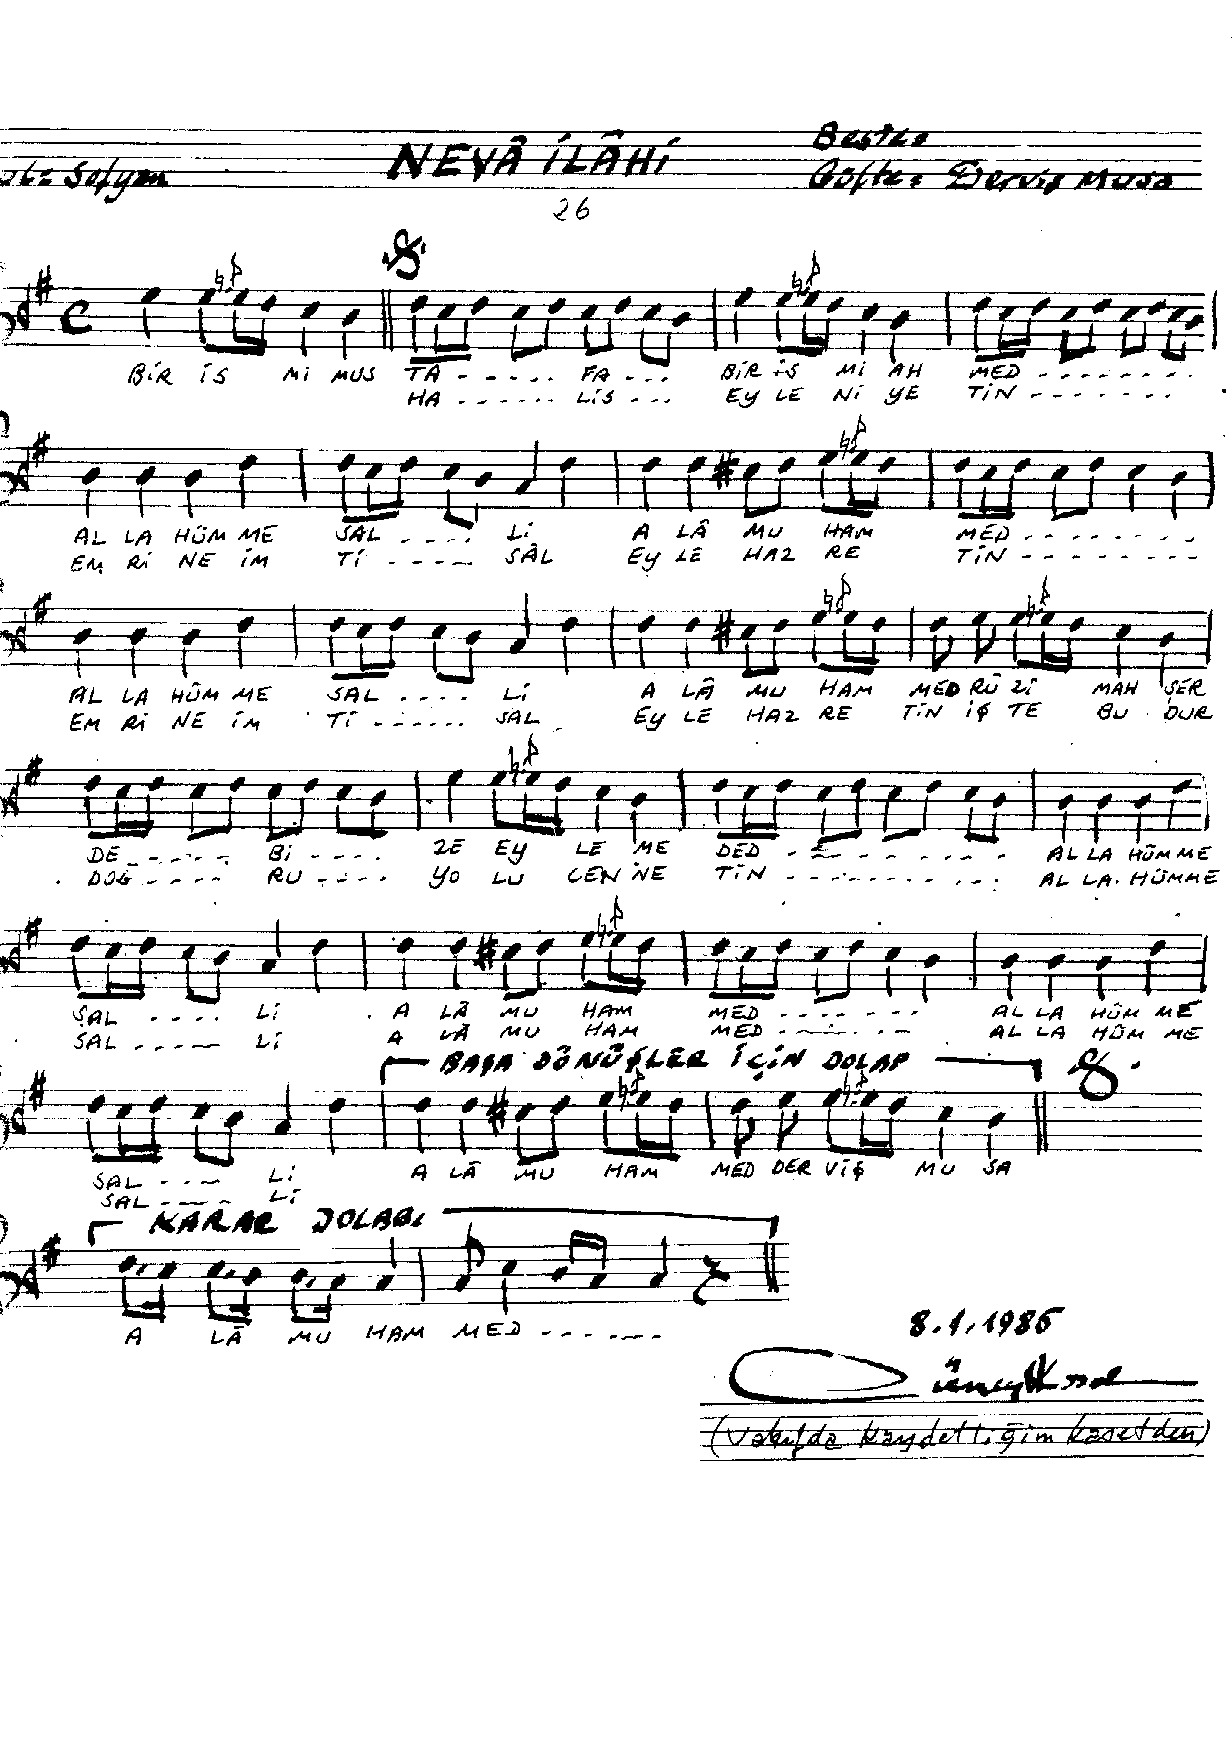 Beste:
Sofyan NEVÂ İLÂHİ Güfte: Derviş Musa
26
BİR İS Mİ MUS TA - - - - - - FA - - - - BİR İS Mİ AH MED - - - - - - - -
HA - - - - - - LİS - - - EY LE Nİ YE TİN - - - - - - -
AL LA HÜM ME SAL - - - - - Lİ A LÂ MU HAM MED - - - - - - - -
EM Rİ NE İM Tİ - - - - - SÂL EY LE HAZ RE TİN - - - - - - - -
AL LA HÜM ME SAL - - - - - Lİ A LÂ MU HAM MED RÛ Zİ MAH ŞER
EM Rİ NE İM Tİ - - - - - - SAL EY LE HAZ RE TİN İŞ TE BU DUR
DE - - - - - - Bİ - - - - ZE EY LE ME DED - - - - - - - - - AL LA HÜM ME
DOĞ - - - - - RU - - - - - YO LU CEN NE TİN - - - - - - - - - AL LA HÜM ME
SAL - - - - Lİ A LÂ MU HAM MED - - - - - - - AL LA HÜM ME
SAL - - - - - Lİ A LÂ MU HAM MED - - - - - - - AL LA HÜM ME
BAŞA DÖNÜŞLER İÇİN DOLAP
SAL - - - - Lİ A LÂ MU HAM MED DER VİŞ MU SA
SAL - - - - Lİ
KARAR DOLABI
A LÂ MU HAM MED - - - - - - -
8.1.1986
(Vakıfda kaydettiğim kasetden)